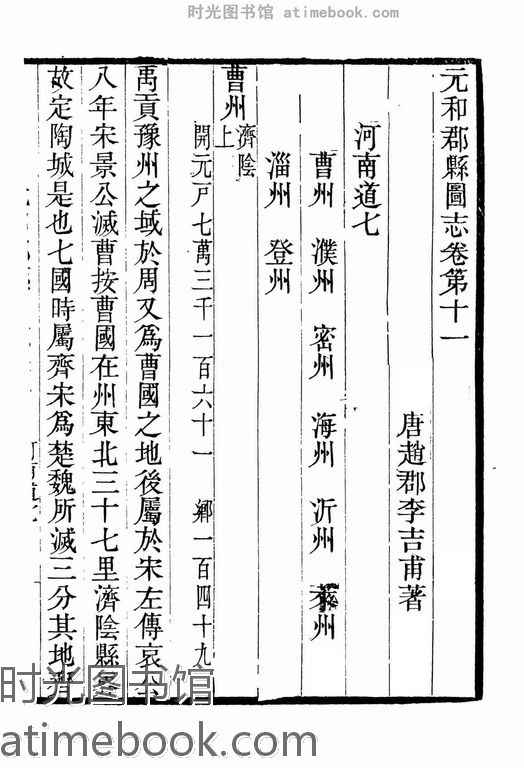 时光图书馆 atimebook.com
元和郡縣圖志卷第十一
唐趙郡李吉甫著
河南道七
曹州 濮州 密州 海州 沂州 州
淄州 登州
曹州 濟陰 上
開元戸七萬三千一百六十一 鄉一百四十九
禹貢豫州之域於周又爲曹國之地後屬於宋左傳哀公
八年宋景公滅曹按曹國在州東北三十七里濟陰縣界
故定陶城是也七國時屬齊宋爲楚魏所滅三分其地
时光图书馆
atimebook.com